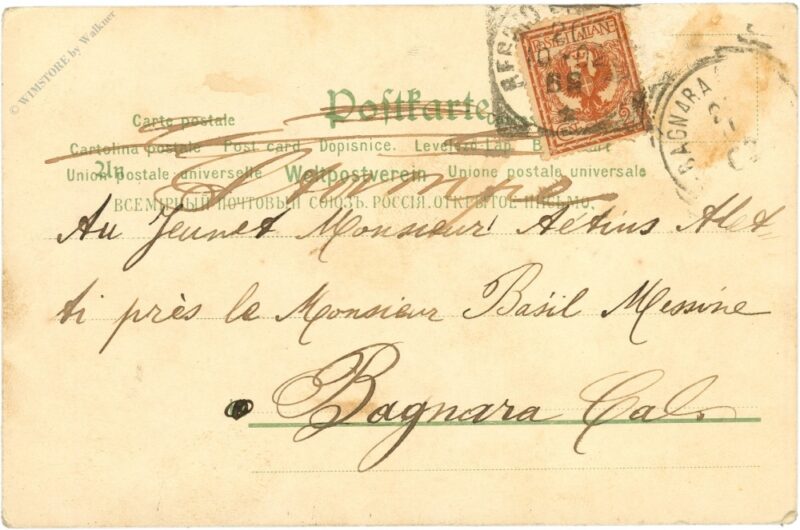 © WIMSTORE by Walkner
Postkarte
Carte postale
Cartolina postale Post card. Dopisnice.
Union postale universelle Weltpostverein Unione postale universale
An
ВСЕМІРНЫЙ ПОЧТОВЫЙ СОЮЗЪ. РОССІЯ. ОТКРЫТОЕ ПИСЬМО.
Stampe
POSTE ITALIANE
BAGNARA
Au Jeunet Monsieur Aétius Alet-
ti près le Monsieur Basil Messine
Bagnara Cal.